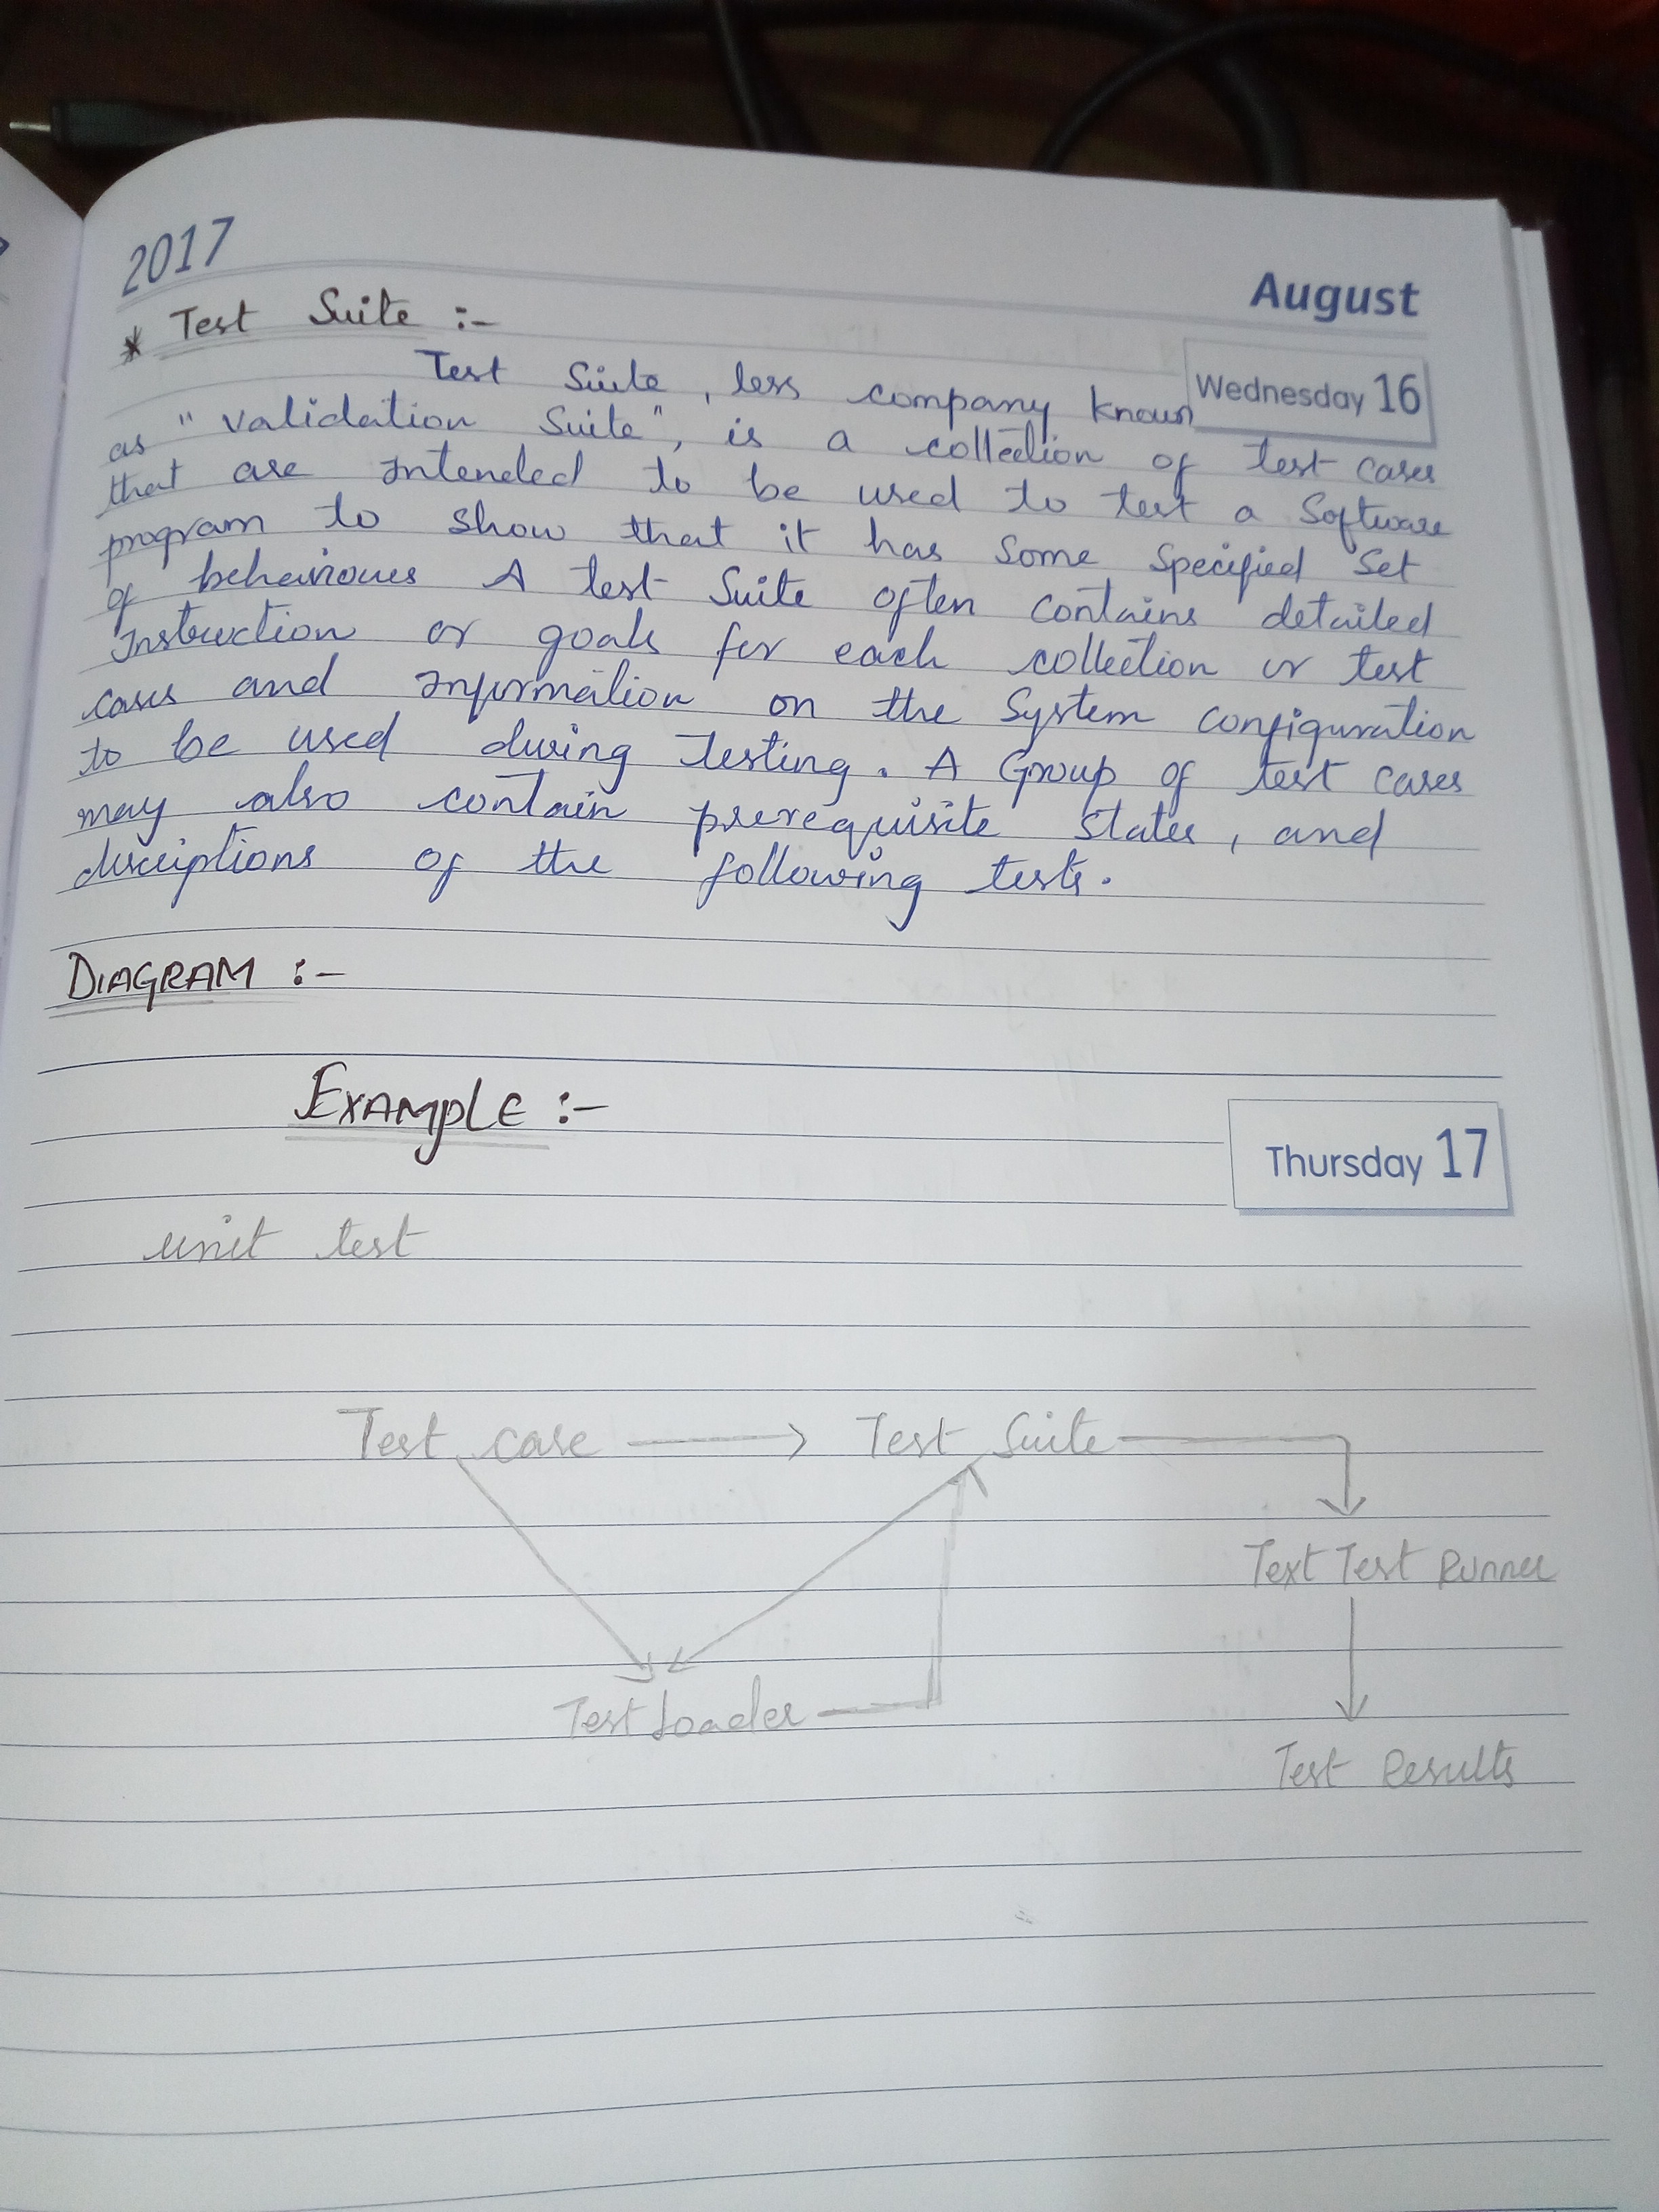 2017
August
* Test Suite :-
Wednesday 16
Test Suite, less company known
as "validation Suite", is a collection of test cases
that are intended to be used to test a Software
program to show that it has some specified set
of behaviours A test Suite often contains detailed
Instruction or goals for each collection or test
cases and information on the System configuration
to be used during testing. A Group of test cases
may also contain prerequisite states, and
discriptions of the following tests.
DIAGRAM :-
EXAMPLE :-
Thursday 17
unit test
Test case Test Suite
Text Test Runner
Test Loader
Test Results